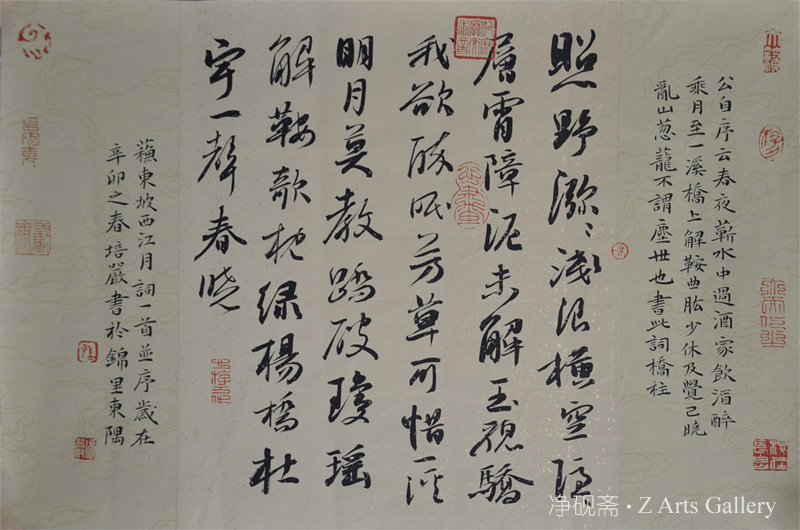 公自序云春夜蘄水中過酒家飲酒醉
乘月至一溪橋上解鞍曲肱少休及覺已曉
亂山葱蘢不謂塵世也書此詞橋柱
照野瀰〻淺浪橫空隱〻
層霄障泥未解玉驄驕
我欲醉眠芳草可惜一溪
明月莫教踏破瓊瑤
解鞍欹枕绿楊橋杜
宇一聲春晓
蘇東坡西江月詞一首並序歲在
辛卯之春培嚴書於錦里東隅
净砚斋·Z Arts Gallery